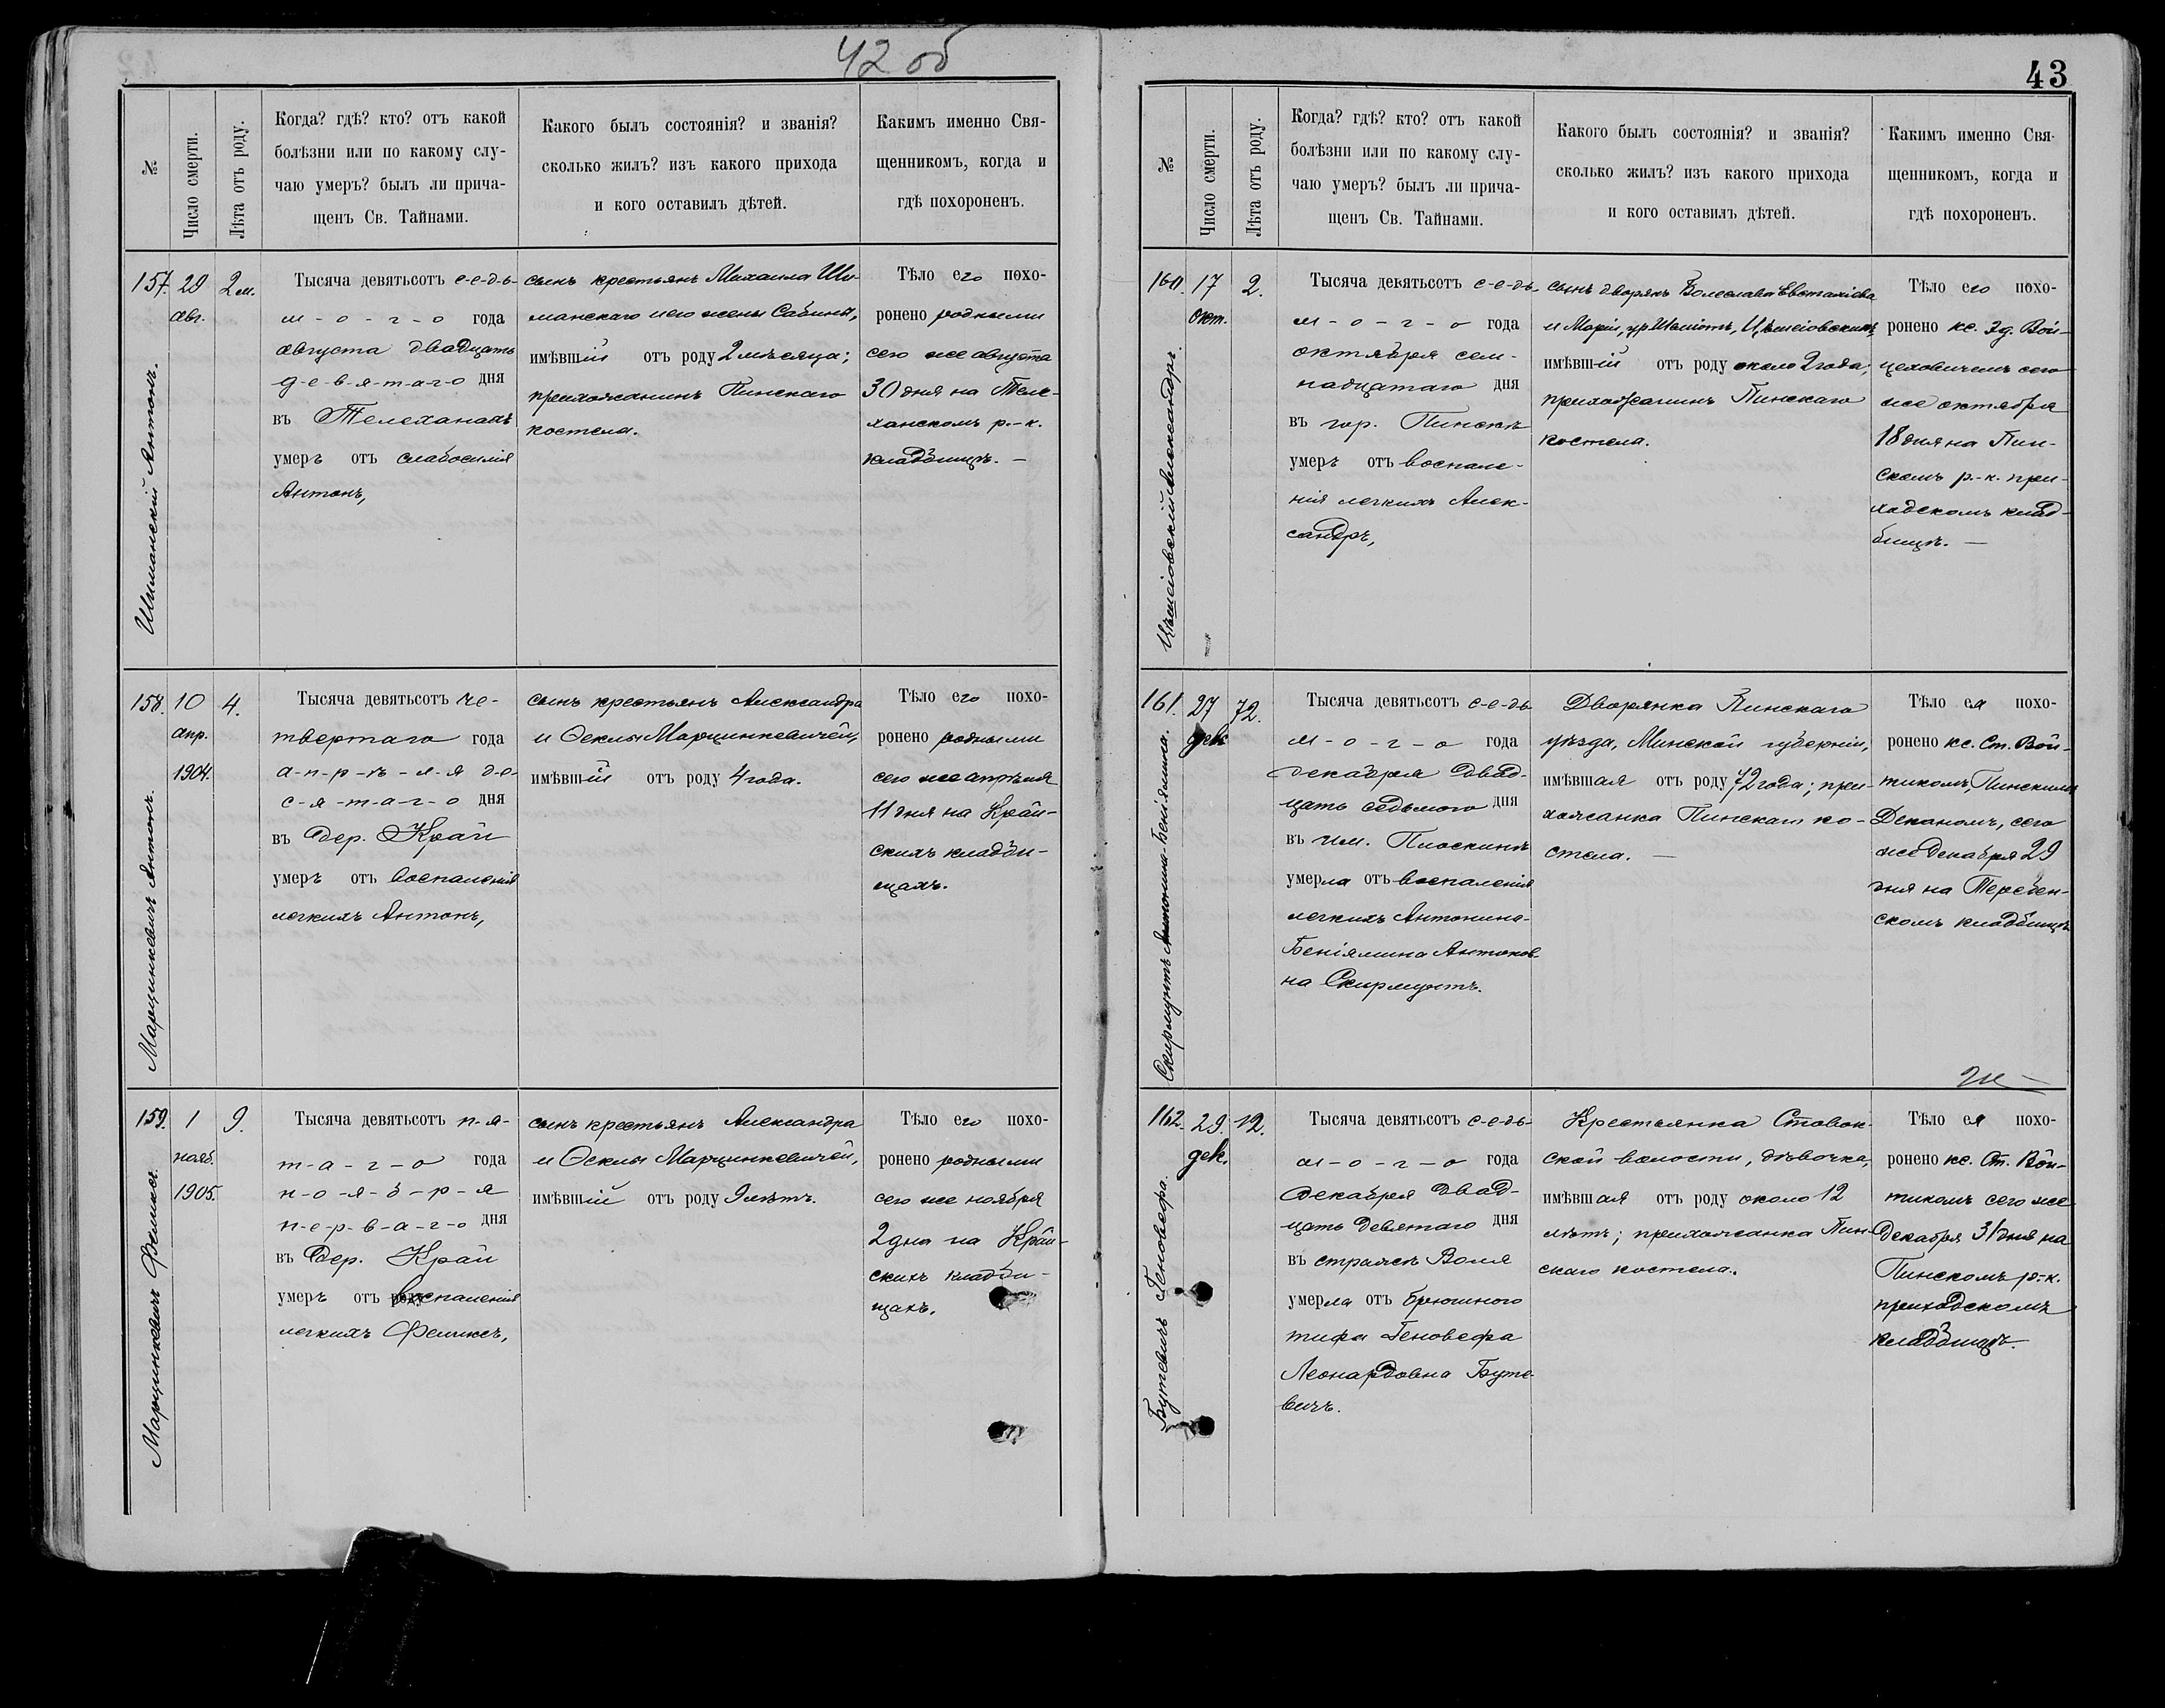 42 об
№
Число смерти.
Лѣта отъ роду.
Когда? гдѣ? кто? отъ какой
болѣзни или по какому слу-
чаю умеръ? былъ ли прича-
щенъ Св. Тайнами.
Какого былъ состоянія? и званія?
сколько жилъ? изъ какого прихода
и кого оставилъ дѣтей.
Какимъ именно Свя-
щенникомъ, когда и
гдѣ похороненъ.
157.
29
авг.
2 м.
Шиманскій Антонъ.
Тысяча девятьсотъ с-е-д-ь-
м - о - г - о года
августа двадцать
д-е-в-я-т-а-г-о дня
въ Телеханахъ
умеръ отъ слабосилія
Антонъ,
сынъ крестьянъ Михаила Ши-
манскаго и его жены Сабины,
имѣвшій отъ роду 2 мѣсяца;
прихожанинъ Пинскаго
костела.
Тѣло его похо-
ронено родными
сего же августа
30 дня на Теле-
ханскомъ р.-к.
кладбищѣ. —
158.
10
апр.
1904.
4.
Марцинкевичъ Антонъ.
Тысяча девятьсотъ че-
твертаго года
а-п-р-ѣ-л-я де-
с-я-т-а-г-о дня
въ дер. Край
умеръ отъ воспаленія
легкихъ Антонъ,
сынъ крестьянъ Александра
и Ѳеклы Марцинкевичей,
имѣвшій отъ роду 4 года.
Тѣло его похо-
ронено родными
сего же апрѣля
11 дня на Край-
скихъ кладби-
щахъ.
159.
1
нояб.
1905.
9.
Марцинкевичъ Феликсъ.
Тысяча девятьсотъ п-я-
т-а-г-о года
н-о-я-б-р-я
п-е-р-в-а-г-о дня
въ дер. Край
умеръ отъ воспаленія
легкихъ Феликсъ,
сынъ крестьянъ Александра
и Ѳеклы Марцинкевичей,
имѣвшій отъ роду 9 лѣтъ.
Тѣло его похо-
ронено родными
сего же ноября
2 дня на Край-
скихъ кладби-
щахъ.
43
№
Число смерти.
Лѣта отъ роду.
Когда? гдѣ? кто? отъ какой
болѣзни или по какому слу-
чаю умеръ? былъ ли прича-
щенъ Св. Тайнами.
Какого былъ состоянія? и званія?
сколько жилъ? изъ какого прихода
и кого оставилъ дѣтей.
Какимъ именно Свя-
щенникомъ, когда и
гдѣ похороненъ.
160.
17
окт.
2.
Цѣшіовскій Александръ.
Тысяча девятьсотъ с-е-дь-
м - о - г - о года
октября сем-
надцатаго дня
въ гор. Пинскѣ
умеръ отъ воспале-
нія легкихъ Алек-
сандръ,
сынъ дворянъ Болеслава Евстахіева
и Маріи, ур.
имѣвшій отъ роду около 2 года;
прихожанинъ Пинскаго
костела.
Тѣло его похо-
ронено кс. Эд. Вой-
цеховичемъ сего
же октября
18 дня на Пин-
скомъ р.-к. при-
ходскомъ клад-
бищѣ. —
161.
27
дек.
72.
Скирмунтъ Антонина-Беніямина.
Тысяча девятьсотъ с-е-дь-
м - о - г - о года
декабря двад-
цать седьмого дня
въ им. Плоскинѣ
умерла отъ воспаленія
легкихъ Антонина-
Беніямина Антонов-
на Скирмунтъ.
Дворянка Пинскаго
уѣзда, Минской губерніи,
имѣвшая отъ роду 72 года; при-
хожанка Пинскаго ко-
стела. —
Тѣло ея похо-
ронено кс. Ст. Вой-
тикомъ, Пинскимъ
Деканомъ, сего
же декабря 29
дня на Теребен-
скомъ кладбищѣ
162.
29.
дек.
12.
Бутевичъ Геновефа.
Тысяча девятьсотъ с-е-дь-
м - о - г - о года
декабря двад-
цать девятаго дня
въ стражѣ Воля
умерла отъ брюшного
тифа Геновефа
Леонардовна Буте-
вичъ.
Крестьянка Ставок-
ской волости, дѣвочка,
имѣвшая отъ роду около 12
лѣтъ; прихожанка Пин-
скаго костела.
Тѣло ея похо-
ронено кс. Ст. Вой-
тикомъ сего же
декабря 31 дня на
Пинскомъ р.-к.
приходскомъ
кладбищѣ.